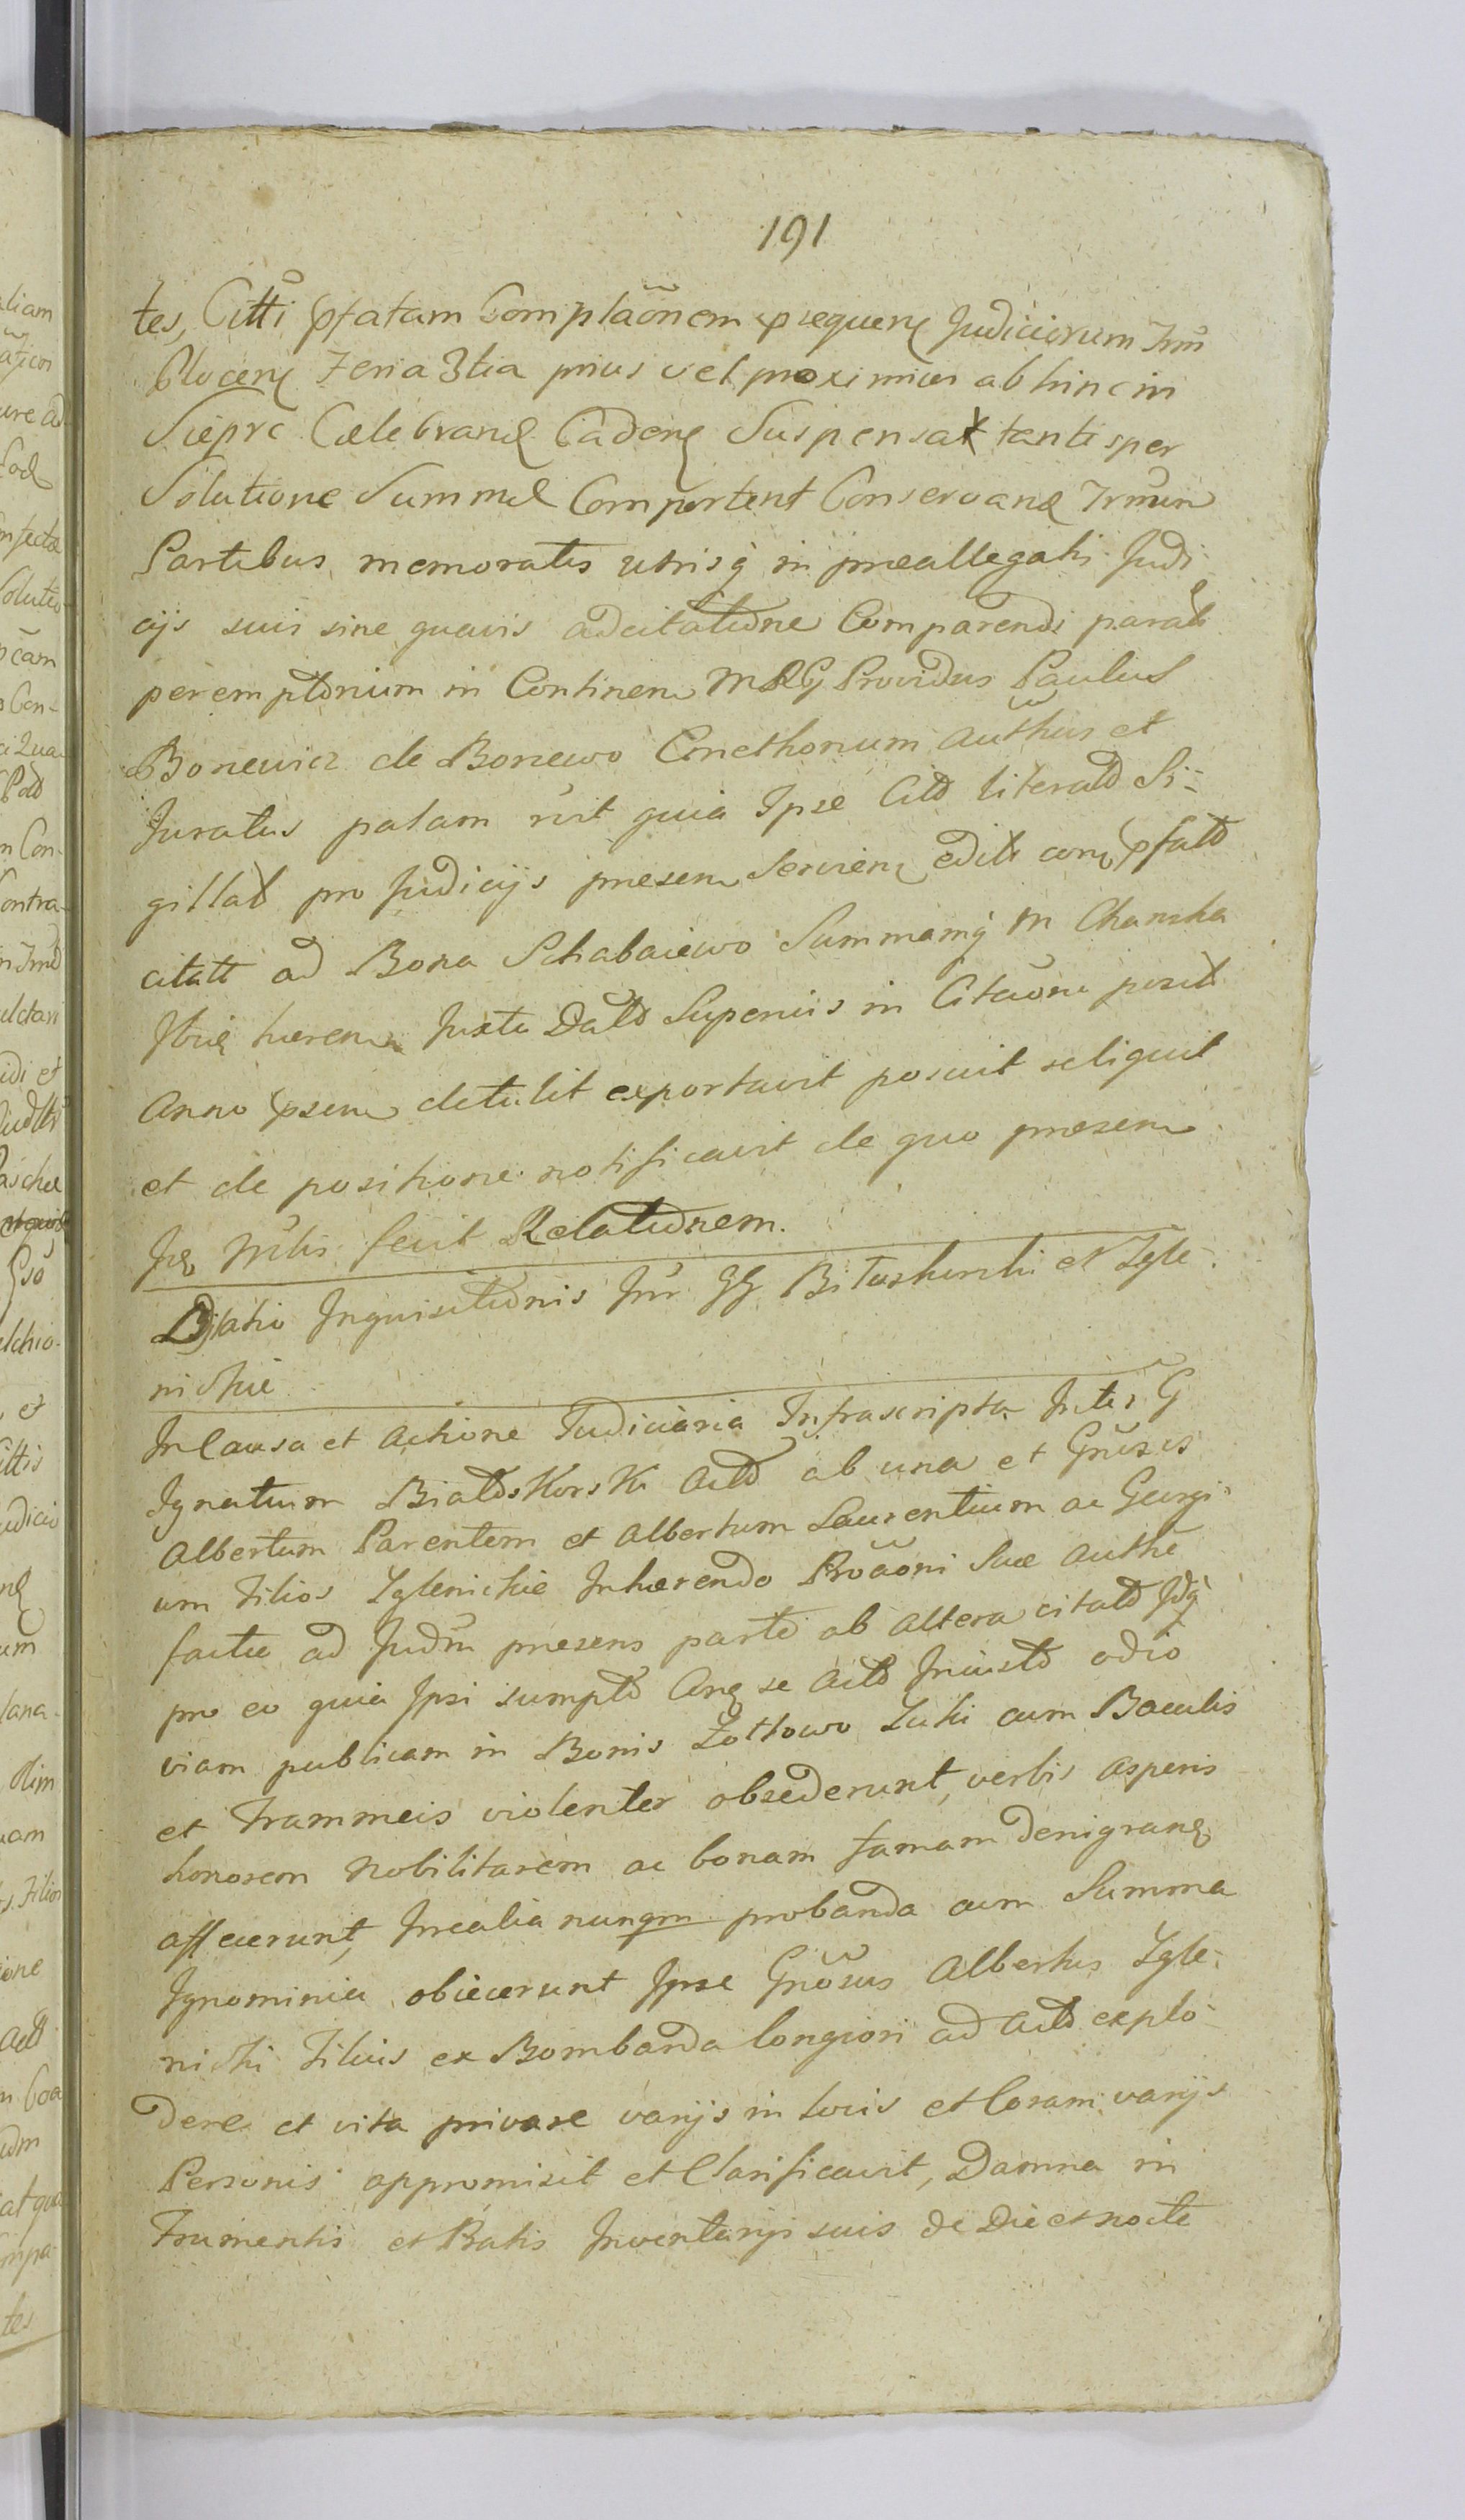 191
tes, Citti pfatam Complaõnem exequen Judiciorum Trm̃
Plocen Feria 3tia prius vel proximius ab hinc in
Sieprc Celebrand Caden Suspensa tantisper
Solutione Summæ Comportent Conservand Trm̃um
Partibus memoratis utrisq̃ in præallegatis Judi
cijs suis sine quavis adcitatione Comparendi parati
peremptorium in Continen MRG Providus Paulus
Boniewicz de Boniewo Cmethonum Authũs et
Juratus palam rt̃it quia Ipse Citt literatt Si-
gillatt pro Judicijs præsen Servien editt con pfatt
citatt ad Bona Schabaiewo Summamq̃ M
hæren Juxta Datt Superius in Citaõne posit
Anno psen detulit exportavit posuit reliquit
et de positione notificavit de quo præsen
fecit Relationem.
Dilatio Inquisitionis Inr GG et Zgle-
nickie
In Causa et Actione Judiciaria Infrascripta Inter G
Ignatium Białoskorski Actt ab una et Gñosos
Albertum Parentem et Albertum Laurentium ac Georgi-
um Filios Zglenickie Inhærendo Proõni Suæ Authe
factæ ad Judm̃ præsens parte ab altera citatt Idq̃
pro eo quia Ipsi sumptt Anq se Actt Iniusto odio
viam publicam in Bonis Żottowo Łuki cum Baculis
et Frammeis violenter obsederunt, verbis asperis
honorem Nobilitarem ac bonam famam denigrand
affecerunt, Irrealia nunqm probanda cum Summa
Ignominia obiecerunt Ipse Gñosus Albertus Zgle-
nicki Filius ex Bombarda longiori ad Actt explo-
dere et vita privare varijs in locis et Coram varijs
Personis appromisit et Clarificavit, Damna in
Frumentis et Pratis Inventarijs suis de Die et nocte